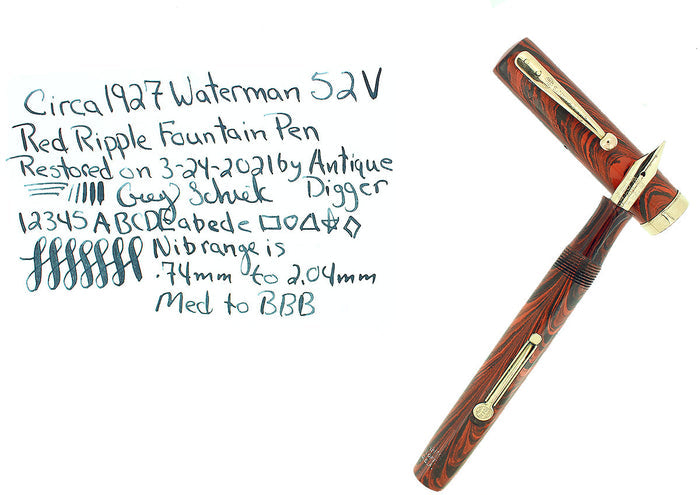 Circa 1927 Waterman 52V
Red Ripple Fountain Pen
Restored on 3-24-2021 by Antique
Digger
12345 ABCDE abcde
Nib range is
.74mm to 2.04mm
Med to BBB